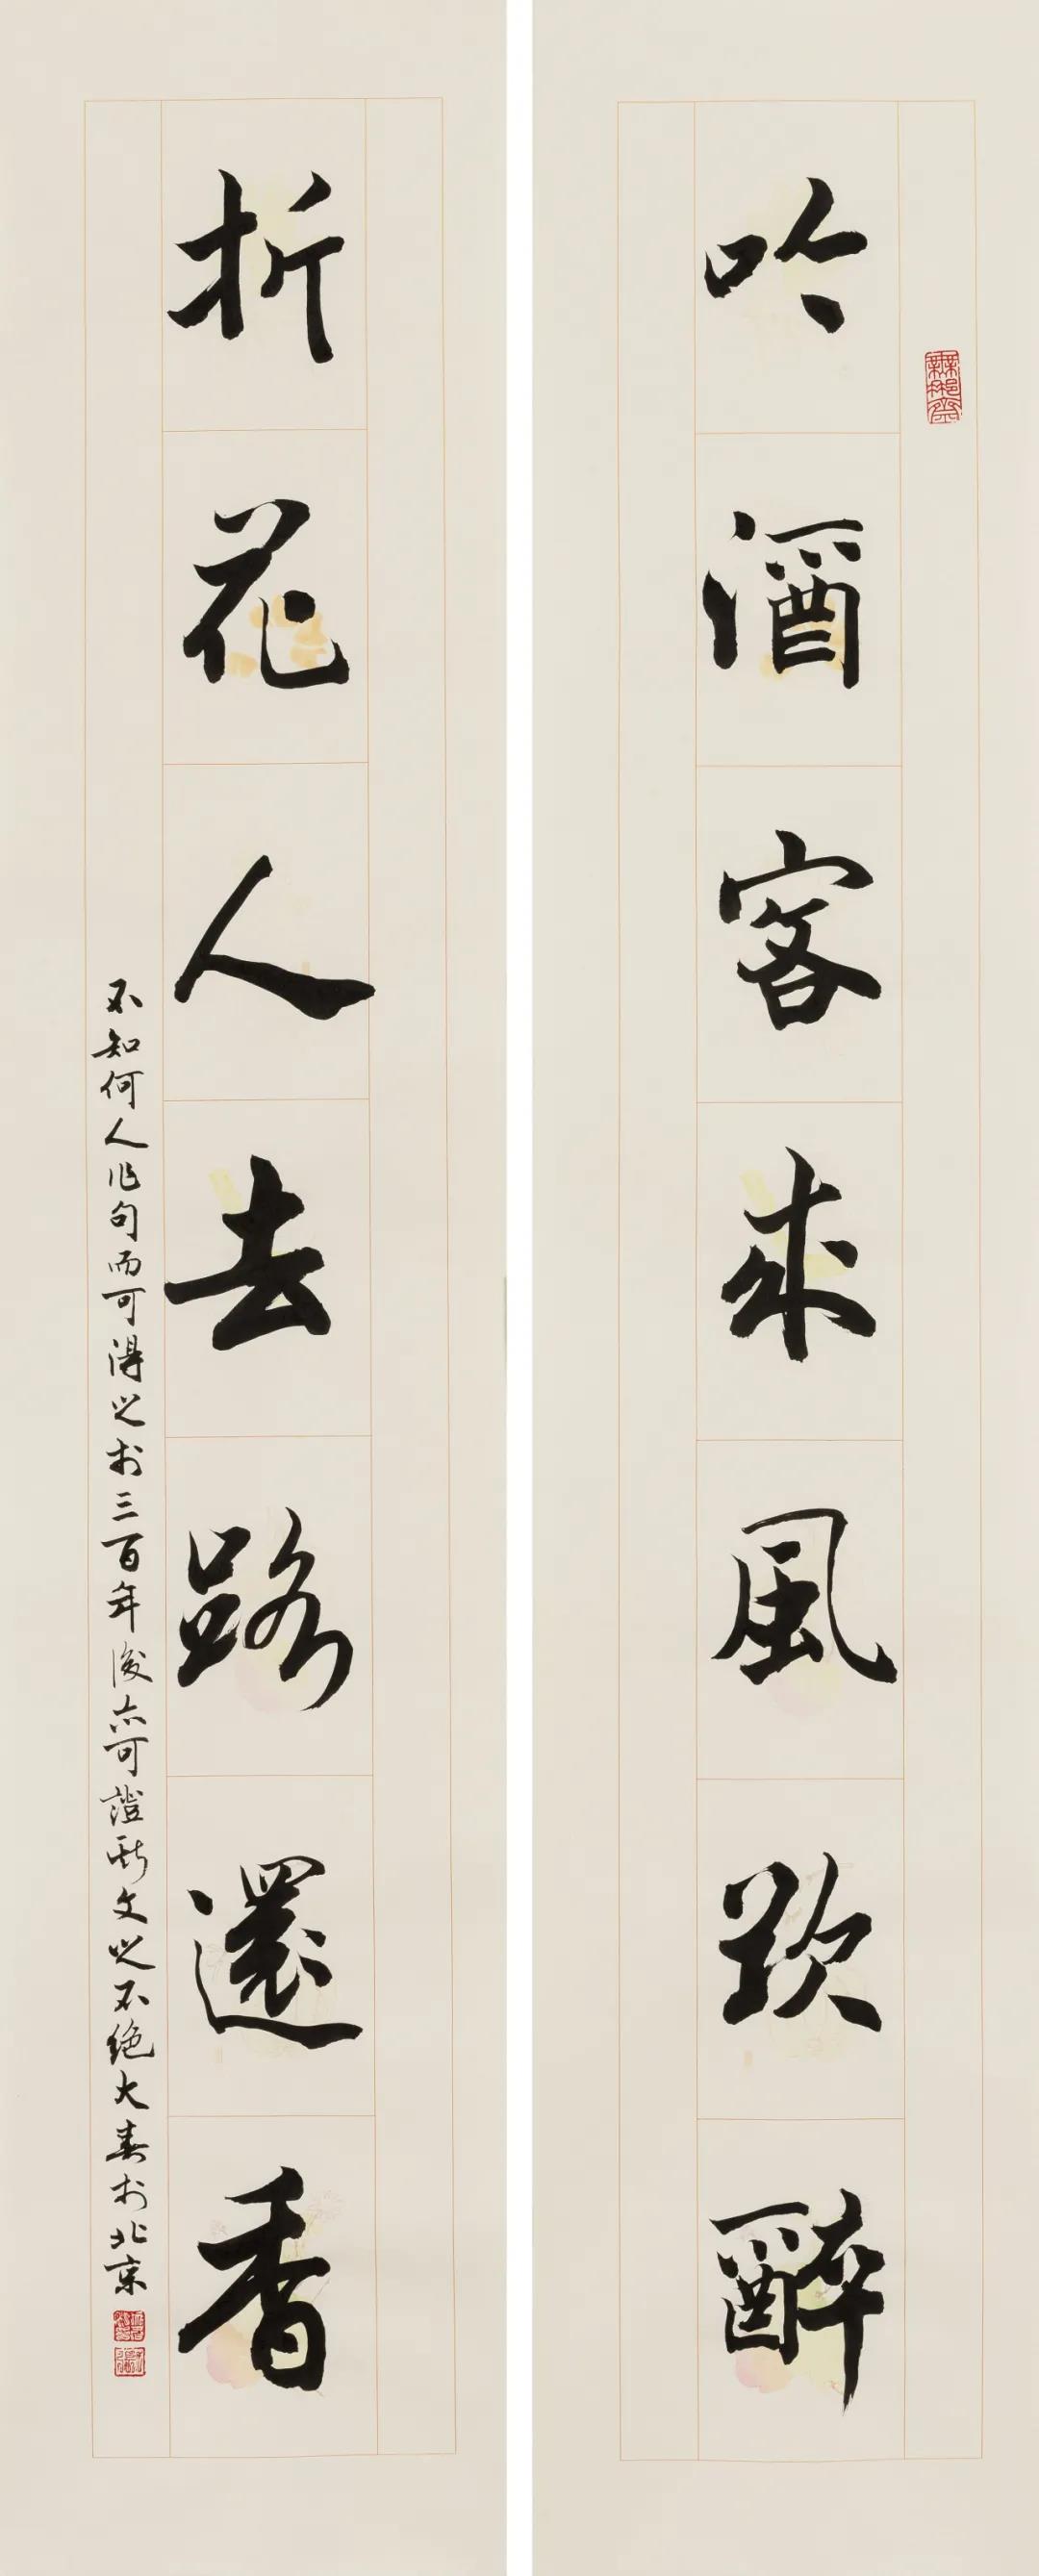 吟酒客來風欲醉
折花人去路還香
不知何人作句而可得之於三百年後亦可證斯文之不絕大春於北京